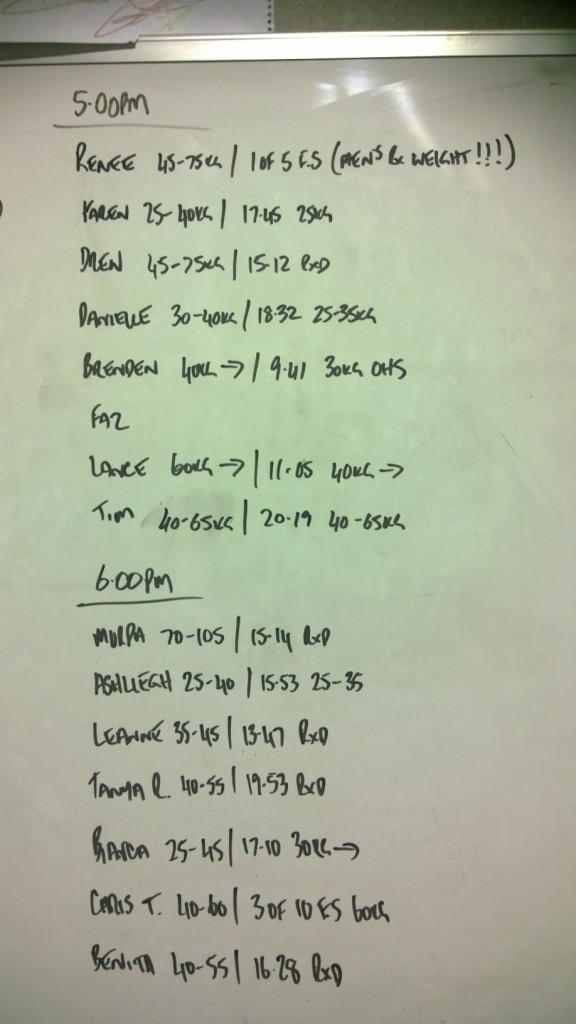 5:00PM
RENEE 45-75KG | 1 OF 5 F.S (MEN'S BC WEIGHT!!!)
KAREN 25-40KG | 17.45 25KG
DREN 45-75KG | 15.12 RXD
DANIELLE 30-40KG | 18.32 25-35KG
BRENDEN 40KG → | 9.41 30KG OHS
FAZ
LANCE 60KG → | 11.05 40KG →
TIM 40-65KG | 20.19 40-65KG
6:00PM
MURPA 70-105 | 15.14 RXD
ASHLEIGH 25-40 | 15.53 25-35
LEANNE 35-45 | 13.47 RXD
TANYA R. 40-55 | 19.53 RXD
25-45 | 17.10 30KG →
CHRIS T. 40-60 | 3 OF 10 FS 60KG
BENITA 40-55 | 16.28 RXD